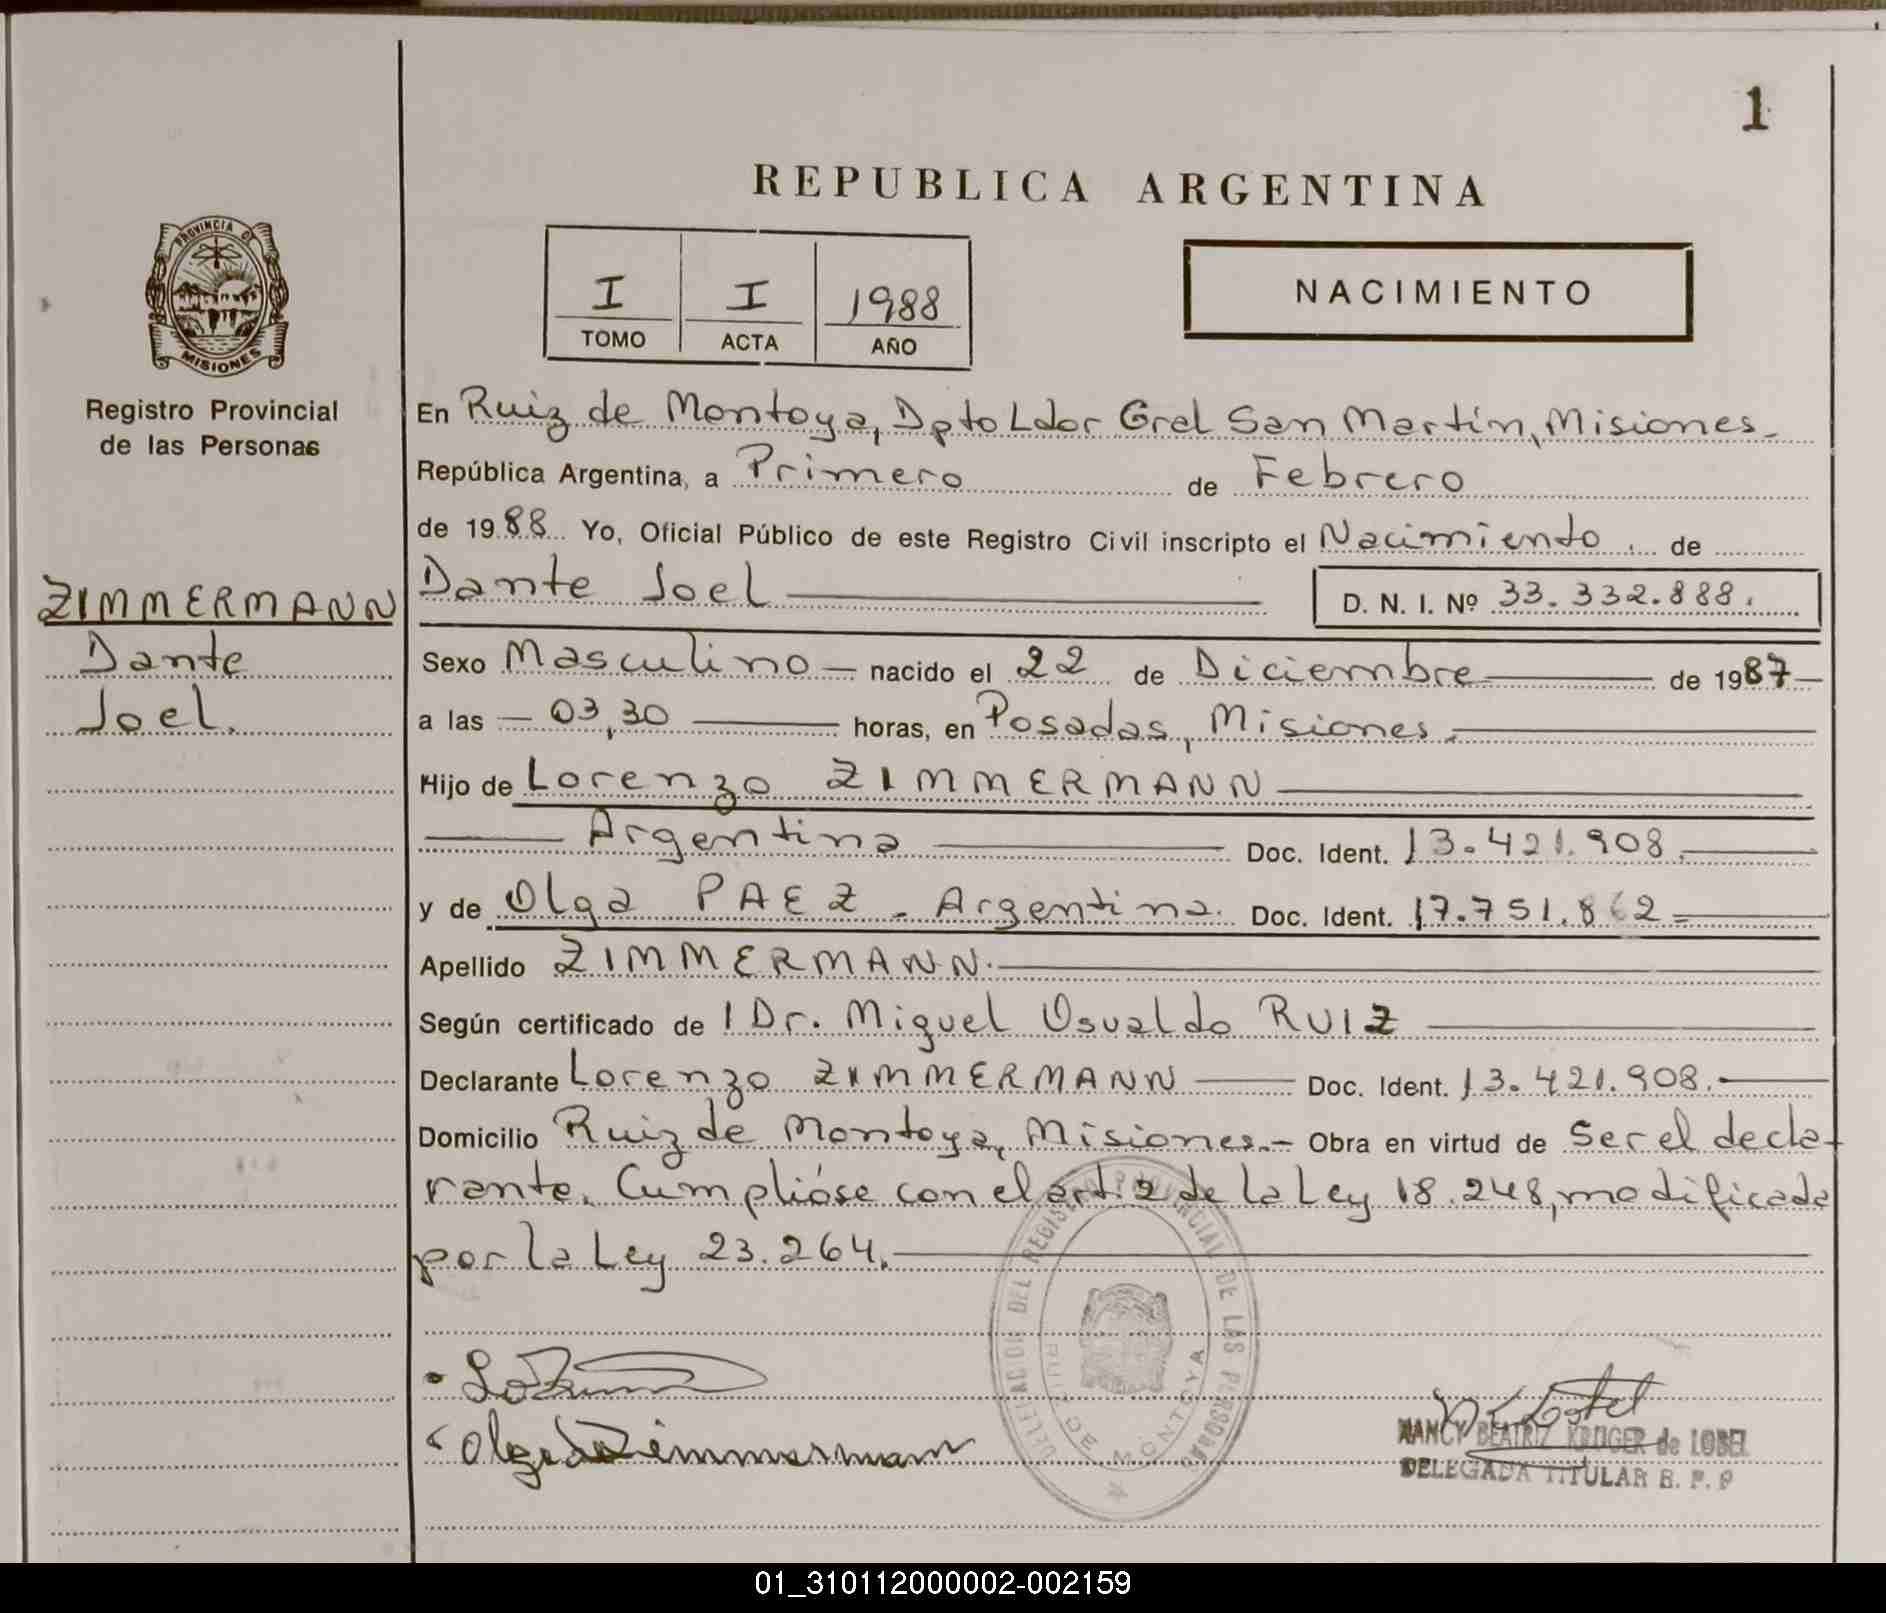 1
REPUBLICA ARGENTINA
PROVINCIA DE
MISIONES
Registro Provincial
de las Personas
I I 1988
TOMO ACTA AÑO
NACIMIENTO
En Ruiz de Montoya, Dpto Ldor Gral San Martín, Misiones
República Argentina, a Primero de Febrero
de 1988 Yo, Oficial Público de este Registro Civil inscripto el Nacimiento. de
ZIMMERMANN
Dante
Joel.
Dante Joel D. N. I. Nº 33.332.888.
Sexo Masculino nacido el 22 de Diciembre de 1987
a las 03,30 horas, en Posadas, Misiones.
Hijo de Lorenzo ZIMMERMANN
Argentina Doc. Ident. 13.421.908.
y de Olga PAEZ - Argentina. Doc. Ident. 17.751.862
Apellido ZIMMERMANN.
Según certificado de 1 Dr. Miguel Osvaldo RUIZ
Declarante Lorenzo ZIMMERMANN Doc. Ident. 13.421.908.
Domicilio Ruiz de Montoya, Misiones.- Obra en virtud de Ser el decla-
rante. Cumplióse con el art. 2 de la Ley 18.248, modificada
por la Ley 23.264.
DELEGACION DEL REGISTRO PROVINCIAL DE LAS PERSONAS
RUIZ DE MONTOYA
Olga de Zimmermann
NANCY BEATRIZ KRUGER de LOBEL
DELEGADA TITULAR R. P. P
01_310112000002-002159